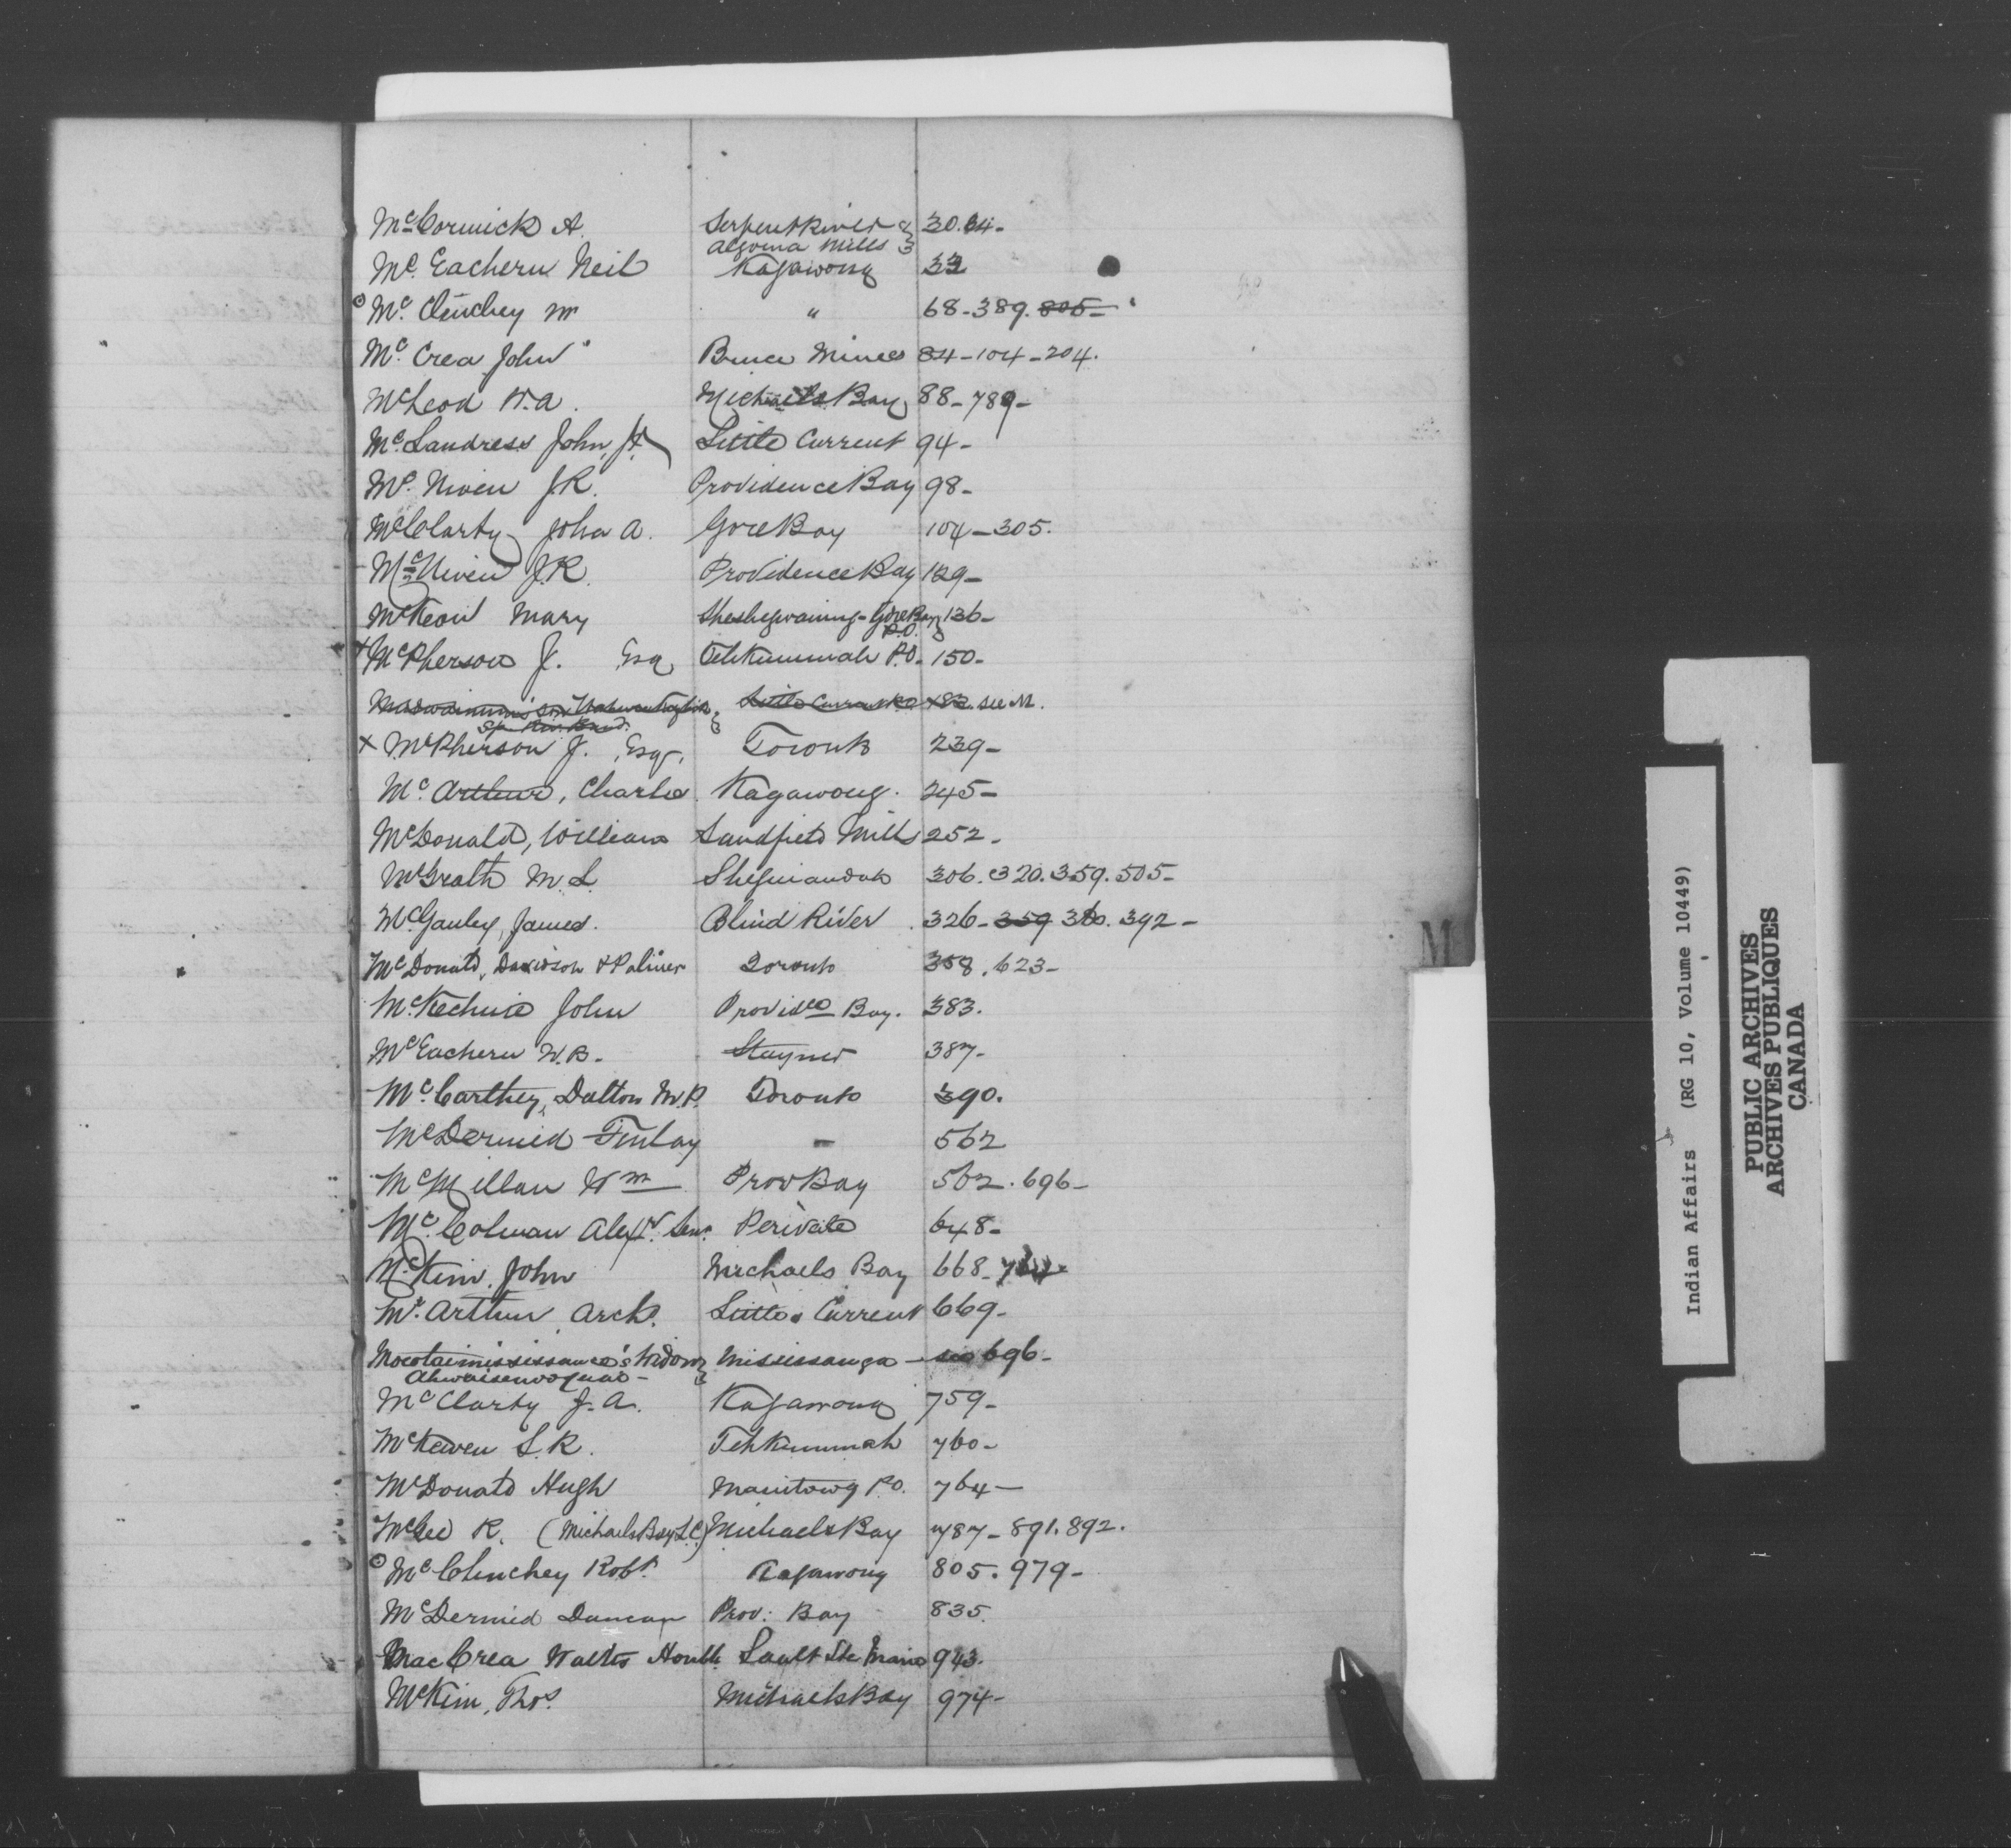 McCormick A. Serpent River & 30. 64-
Algoma Mills
McEachern Neil Kagawong 33
McClinchey Wm " 68-389. 805-
McCrea John Bruce Mines 84-104-204.
McLeod W.A. Michaels Bay 88-789-
McLandress John, Jr Little Current 94-
McNiven J.R. Providence Bay 98-
McClarty John A. Gore Bay 104-305.
McNiven J.R. Providence Bay 129-
McKeon Mary Sheshegwaning-Gore Bay 136-
P.O.
+ McPherson J. Esq Tehkummah P.O. 150-
Little Current P.O. 183 see M.
Sp. Riv. Band.
x McPherson J. Esq. Toronto 239-
McArthur, Charles. Kagawong. 245-
McDonald, William Sandfield Mills 252-
McGrath M.L. Sheguiandah 306. 320. 359. 505-
McGauley, James. Blind River 326-359 380. 392-
McDonald, Davidson & Palmer Toronto 358. 623-
McKechnie John Providce Bay. 383.
McEachern W.B. Stayner 387-
McCarthey, Dalton M.P. Toronto 390.
McDermid Finlay - 562
McMillan Wm Prov Bay 562. 696-
McColman Alexr. Senr. Perivale 648-
McKim, John Michaels Bay 668-
McArthur Arch. Little Current 669-
Mocotaimississance's Widow Mississauga - see 696-
McClarty J.A. Kagawong 759-
McKewen S.R. Tehkummah 760-
McDonald Hugh Manitowg P.O. 764-
McGee R. (Michaels Bay L.C.) Michaels Bay 787-891. 892.
McClinchey Robt. Kagawong 805. 979-
McDermid Duncan Prov: Bay 835.
MacCrea Walter Honble. Sault Ste Marie 943.
McKim, Thos. Michaels Bay 974-
M
Indian Affairs (RG 10, Volume 10449)
PUBLIC ARCHIVES
ARCHIVES PUBLIQUES
CANADA